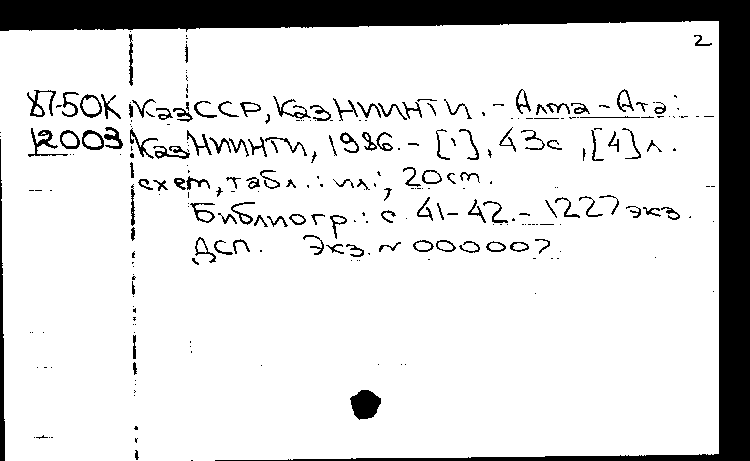 2
87-50К КазССР, КазНИИНТИ. - Алма-Ата:
12003 КазНИИНТИ, 1986. - [1], 43с, [4] л.
схем, табл.: ил.; 20 cm.
Библиогр.: с 41-42. - 1227 экз.
ДСП. Экз. N 000007